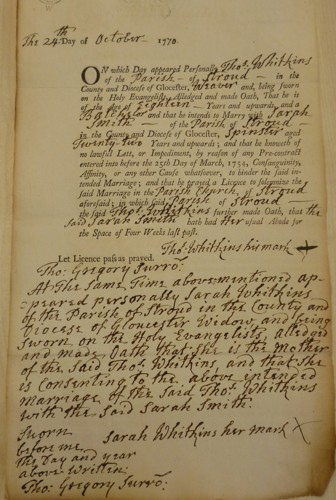 The 24th Day of October 1770
ON which Day appeared Personally Thos. Whitkins
of the Parish of Stroud in the
County and Diocess of Glocester, Weaver and, being sworn
on the Holy Evangelist, Alledged and made Oath, That he is
of the Age of Eighteen Years and upwards, and a
Batchelor and that he intends to Marry with Sarah
Smith of the Parish of Stroud
in the County and Diocess of Glocester, Spinster aged
Twenty two Years and upwards; and that he knoweth of
no lawful Lett, or Impediment, by reason of any Pre-contract
entered into before the 25th Day of March, 1754, Consanguinity,
Affinity, or any other Cause whatsoever, to hinder the said in-
tended Marriage; and that he prayed a Licence to solemnize the
said Marriage in the Parish Church of Stroud
aforesaid; in which said Parish of Stroud
the said Thos. Whitkins further made Oath, that the
said Sarah Smith hath had Her usual Abode for
the Space of Four Weeks last past.
Thos. Whitkins his mark +
Let Licence pass as prayed.
Tho: Gregory Surro:
At the Same Time above mentioned ap=
peared personally Sarah Whitkins
of the Parish of Stroud in the County and
Diocese of Gloucester Widow, and being
Sworn on the Holy Evangelist, alledged
and made Oath that She is the Mother
of the Said Thos. Whitkins, and that She
is Consenting to the above intended
Marriage of the Said Thos. Whitkins
with the Said Sarah Smith.
Sarah Whitkins her mark X
Sworn
before me
the Day and year
above Written.
Tho: Gregory Surro: